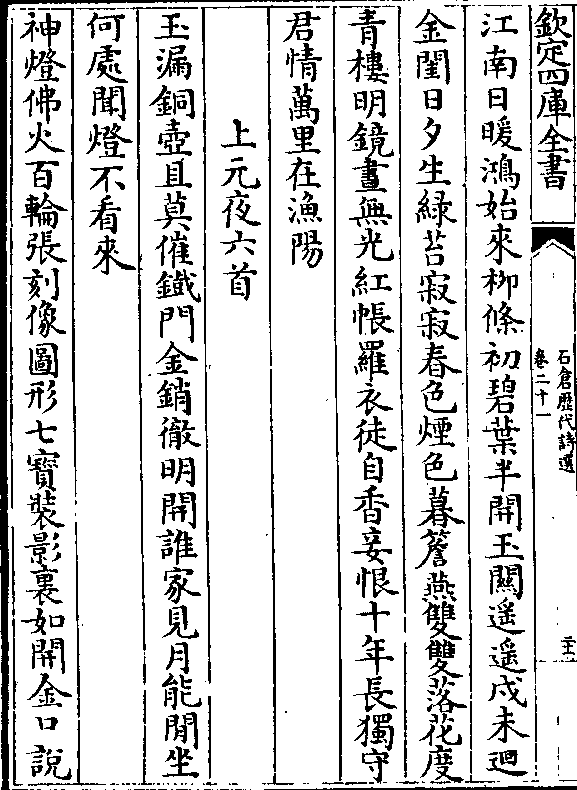 欽定四庫全書
石倉歷代詩選
卷二十一
二十二
江南日暖鴻始來柳條初碧葉半開玉關遥遥戍未迴
金閨日夕生緑苔寂寂春色煙色暮簷燕雙雙落花度
青樓明鏡晝無光紅帳羅衣徒自香妾恨十年長獨守
君情萬里在漁陽
上元夜六首
玉漏銅壺且莫催鐵門金銷徹明開誰家見月能閒坐
何處聞燈不看來
神燈佛火百輪張刻像圖形七寶裝影裏如開金口說